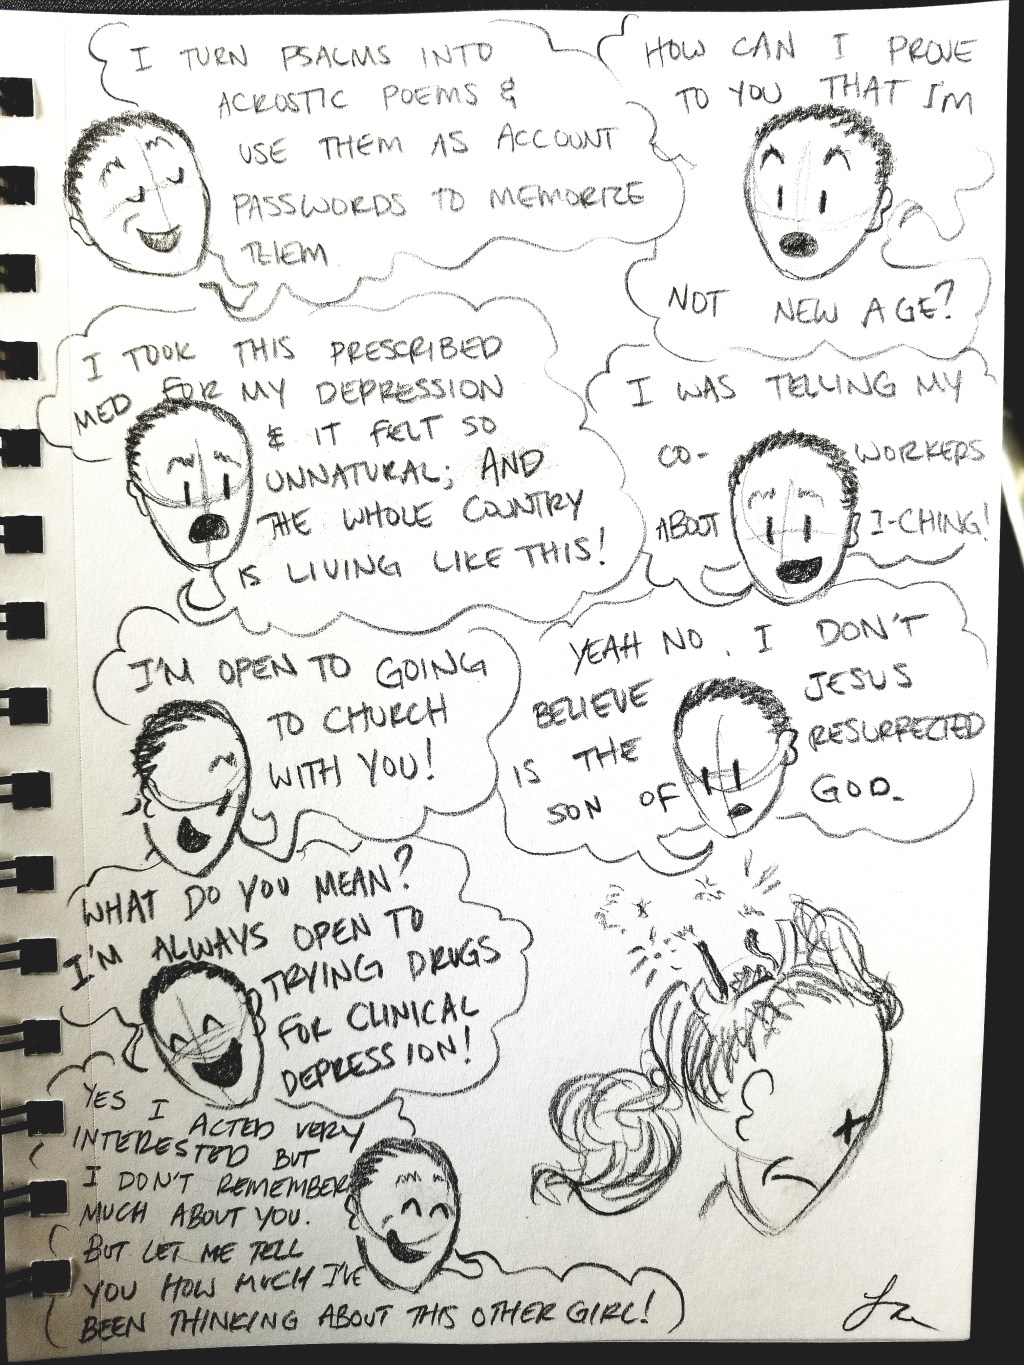 I TURN PSALMS INTO
ACROSTIC POEMS &
USE THEM AS ACCOUNT
PASSWORDS TO MEMORIZE
THEM.
HOW CAN I PROVE
TO YOU THAT I'M
NOT NEW AGE?
I TOOK THIS PRESCRIBED
MED FOR MY DEPRESSION
& IT FELT SO
UNNATURAL; AND
THE WHOLE COUNTRY
IS LIVING LIKE THIS!
I WAS TELLING MY
CO-WORKERS
ABOUT I-CHING!
I'M OPEN TO GOING
TO CHURCH
WITH YOU!
YEAH NO, I DON'T
BELIEVE JESUS
IS THE RESURRECTED
SON OF GOD.
WHAT DO YOU MEAN?
I'M ALWAYS OPEN TO
TRYING DRUGS
FOR CLINICAL
DEPRESSION!
YES I ACTED VERY
INTERESTED BUT
I DON'T REMEMBER
MUCH ABOUT YOU.
BUT LET ME TELL
YOU HOW MUCH I'VE
BEEN THINKING ABOUT THIS OTHER GIRL!